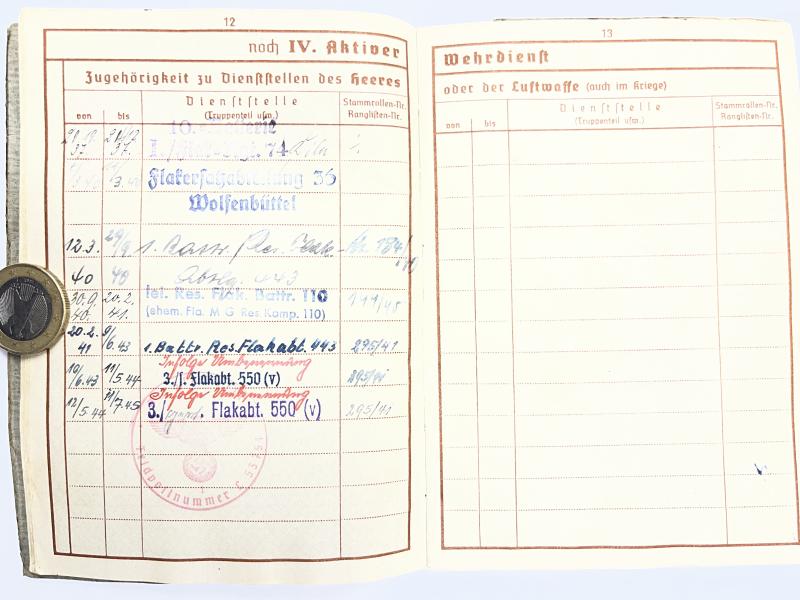 12
noch IV. Aktiver
Zugehörigkeit zu Dienststellen des Heeres
von bis
Dienststelle
(Truppenteil usw.)
Stammrollen-Nr.
Ranglisten-Nr.
10. Batterie
37. 37. 74 Köln
3.40 Flakersatzabteilung 36
Wolfenbüttel
12.3. 29/9 1. Battr. Res. Flak- Nr. 184/40
40 40 Abtlg. 443
30.9. 20.2. lei. Res. Flak. Battr. 110
40. 41. (ehem. Fla. M G Res. Komp. 110)
20.2. 9/
41 6.43 1. Battr. Res. Flakabt. 443 295/41
Infolge Umbenennung
10/6.43 11/5.44 3./I. Flakabt. 550 (v) 295/41
Infolge Umbenennung
12/5.44 11/7.45 3./ . Flakabt. 550 (v) 295/41
Feldpostnummer
13
Wehrdienst
oder der Luftwaffe (auch im Kriege)
von bis
Dienststelle
(Truppenteil usw.)
Stammrollen-Nr.
Ranglisten-Nr.